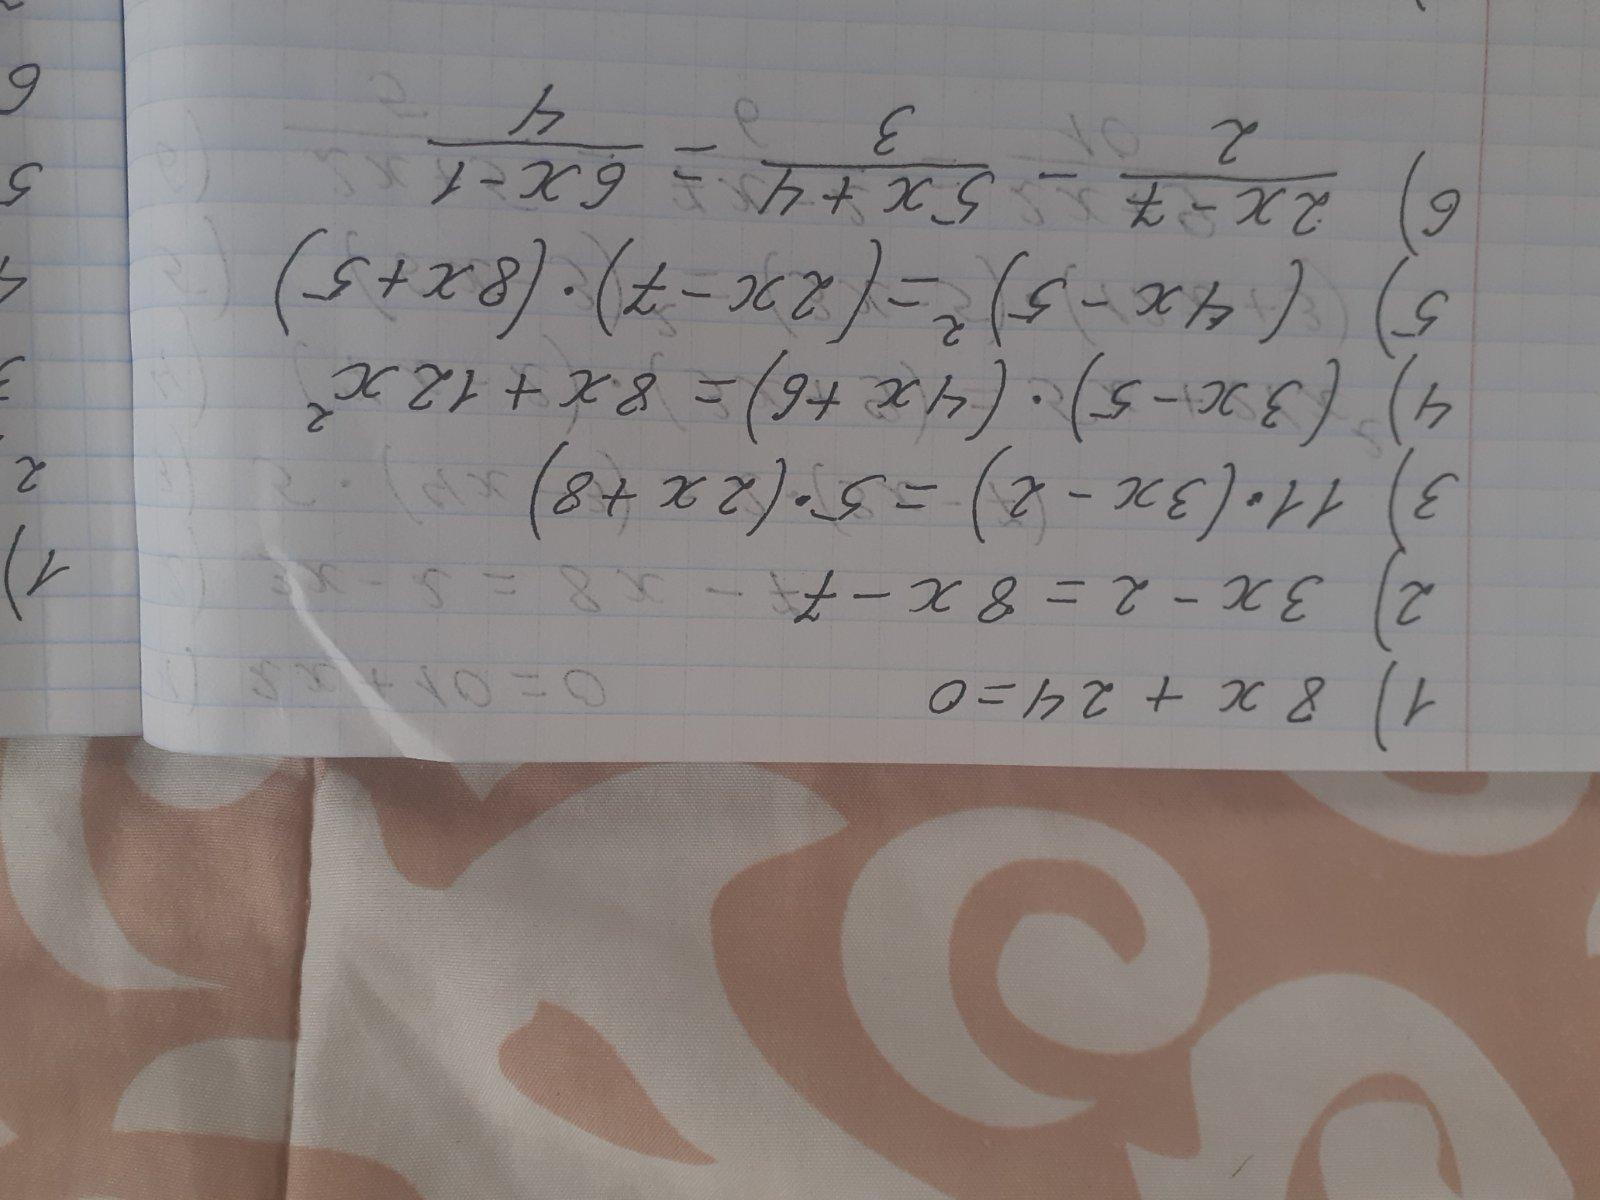 1) 8x + 24 = 0
2) 3x - 2 = 8x - 7
3) 11·(3x - 2) = 5·(2x + 8)
4) (3x - 5)·(4x + 6) = 8x + 12x²
5) (4x - 5)² = (2x - 7)·(8x + 5)
6) (2x - 7)/2 - (5x + 4)/3 = (6x - 1)/4
1)
2
3
4
5
6